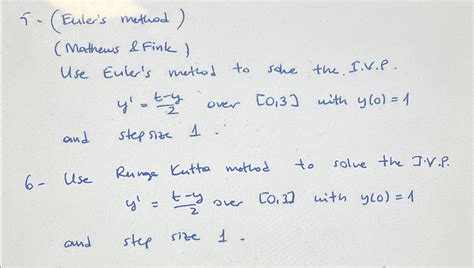 5- (Euler's method)
(Mathews & Fink)
Use Euler's method to solve the I.V.P.
y' = (t-y)/2 over [0,3] with y(0) = 1
and step size 1.
6- Use Runge Kutta method to solve the I.V.P.
y' = (t-y)/2 over [0,3] with y(0) = 1
and step size 1.